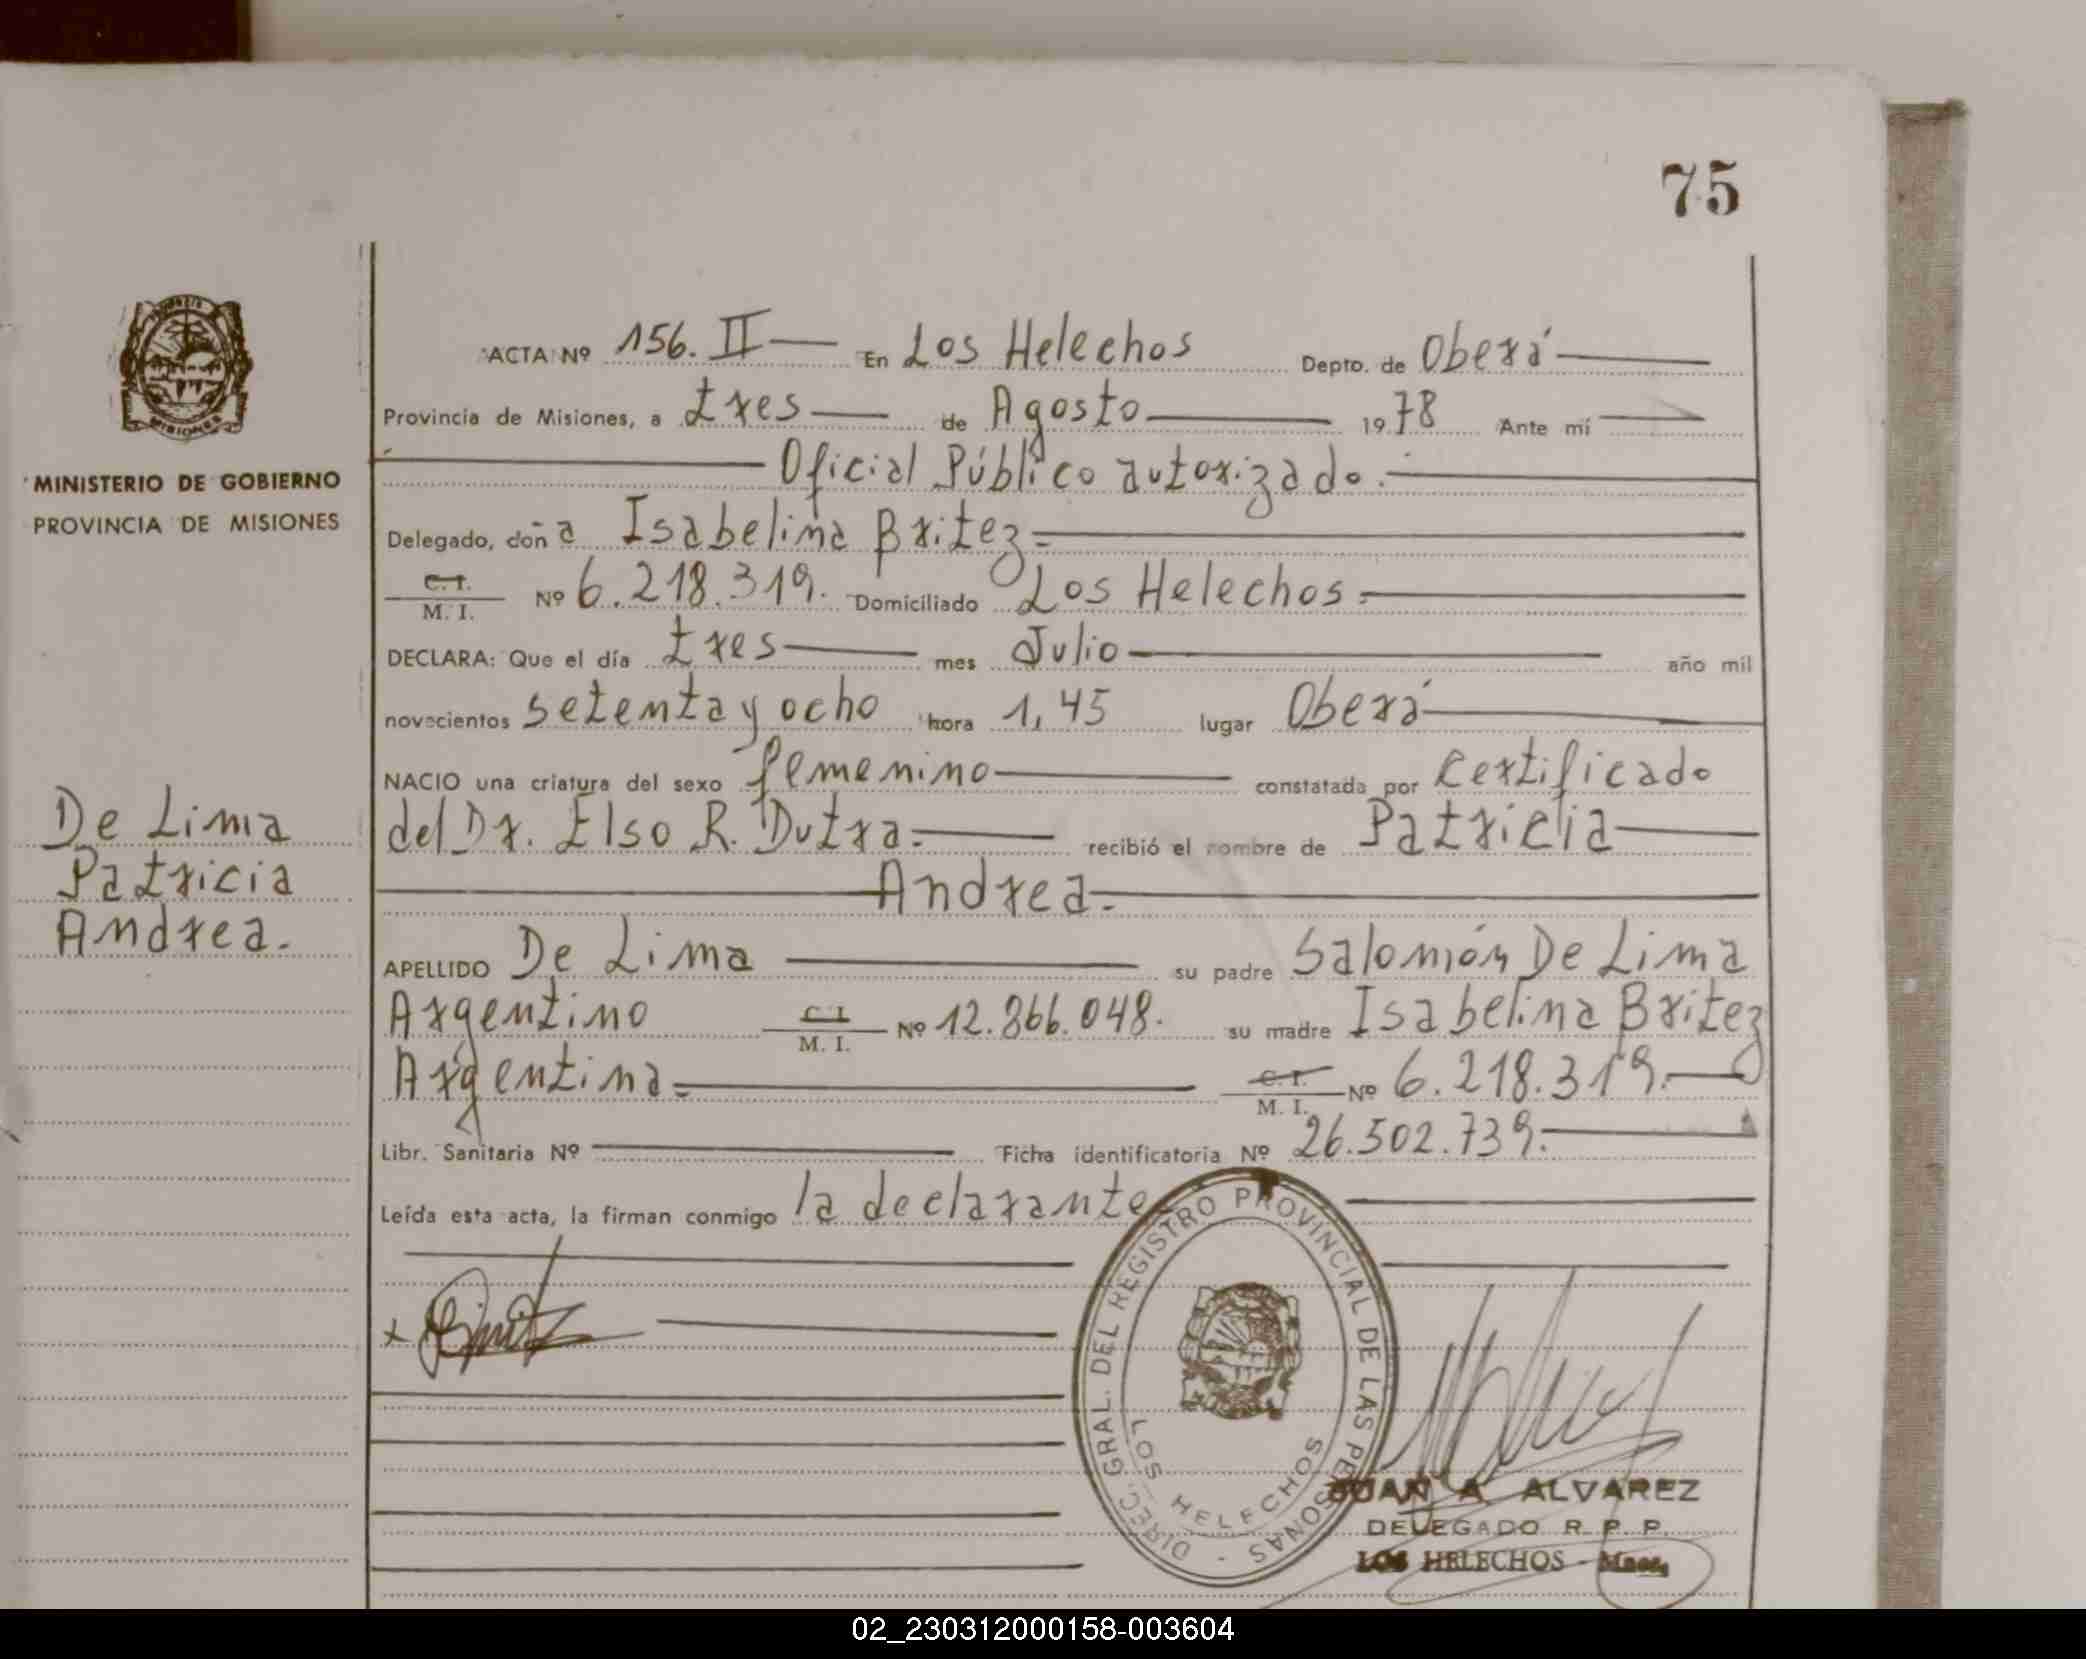 75
ACTA Nº 156. II En Los Helechos Depto. de Oberá
Provincia de Misiones, a tres de Agosto 1978 Ante mí
Oficial Público autorizado.
MINISTERIO DE GOBIERNO
PROVINCIA DE MISIONES
Delegado, doña Isabelina Britez
C. I. M. I. Nº 6.218.319. Domiciliado Los Helechos.
DECLARA: Que el día tres mes Julio año mil
novecientos setenta y ocho hora 1,45 lugar Oberá
NACIO una criatura del sexo femenino constatada por certificado
De Lima
Patricia
Andrea.
del Dr. Elso R. Dutra. recibió el nombre de Patricia
Andrea.
APELLIDO De Lima su padre Salomón De Lima
Argentino C. I. M. I. Nº 12.866.048. su madre Isabelina Britez
Argentina. C. I. M. I. Nº 6.218.319.
Libr. Sanitaria Nº Ficha identificatoria Nº 26.502.739.
Leída esta acta, la firman conmigo la declarante
x
DIREC. GRAL. DEL REGISTRO PROVINCIAL DE LAS PERSONAS -
LOS HELECHOS
JUAN A ALVAREZ
DELEGADO R. P. P.
LOS HELECHOS - Mnes.
02_230312000158-003604